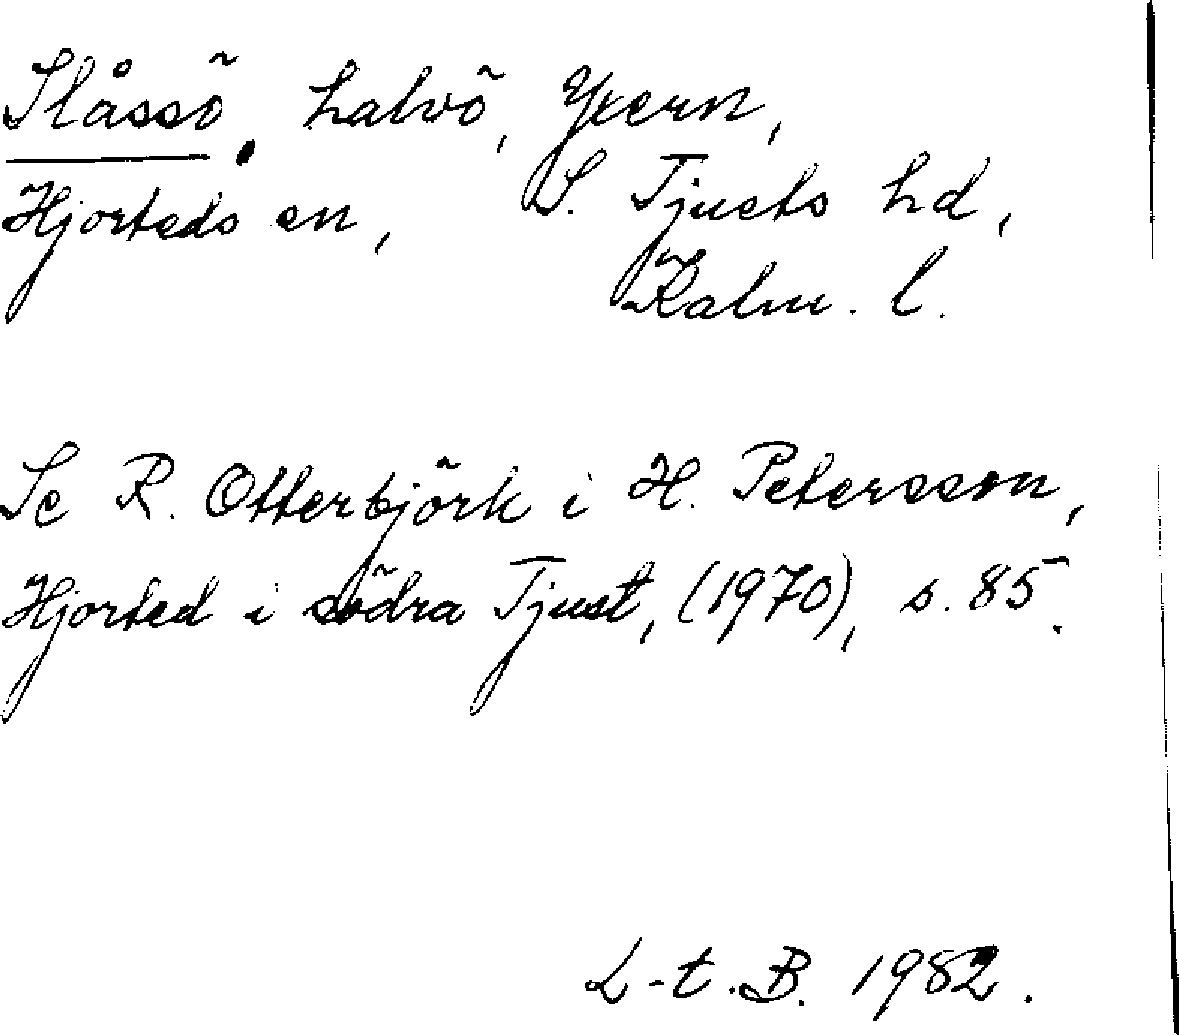 Slåssö, halvö, Yxern,
Hjorteds sn, S. Tjusts hd,
Kalm. l.
Se R. Otterbjörk i H. Petersson,
Hjorted i södra Tjust, (1970), s. 85.
L-t. B. 1982.